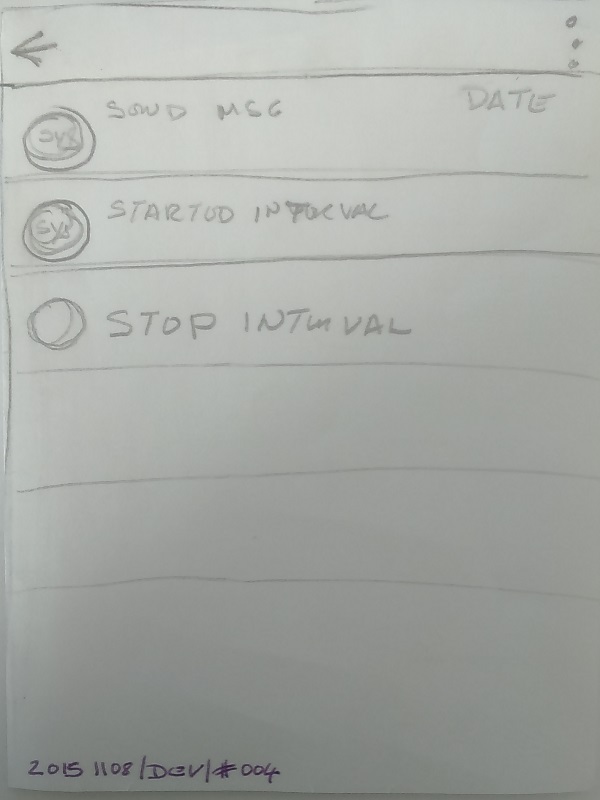 SEND MSG DATE
SYS
STARTED INTERVAL
SYS
STOP INTERVAL
2015 1108/DEV/#004